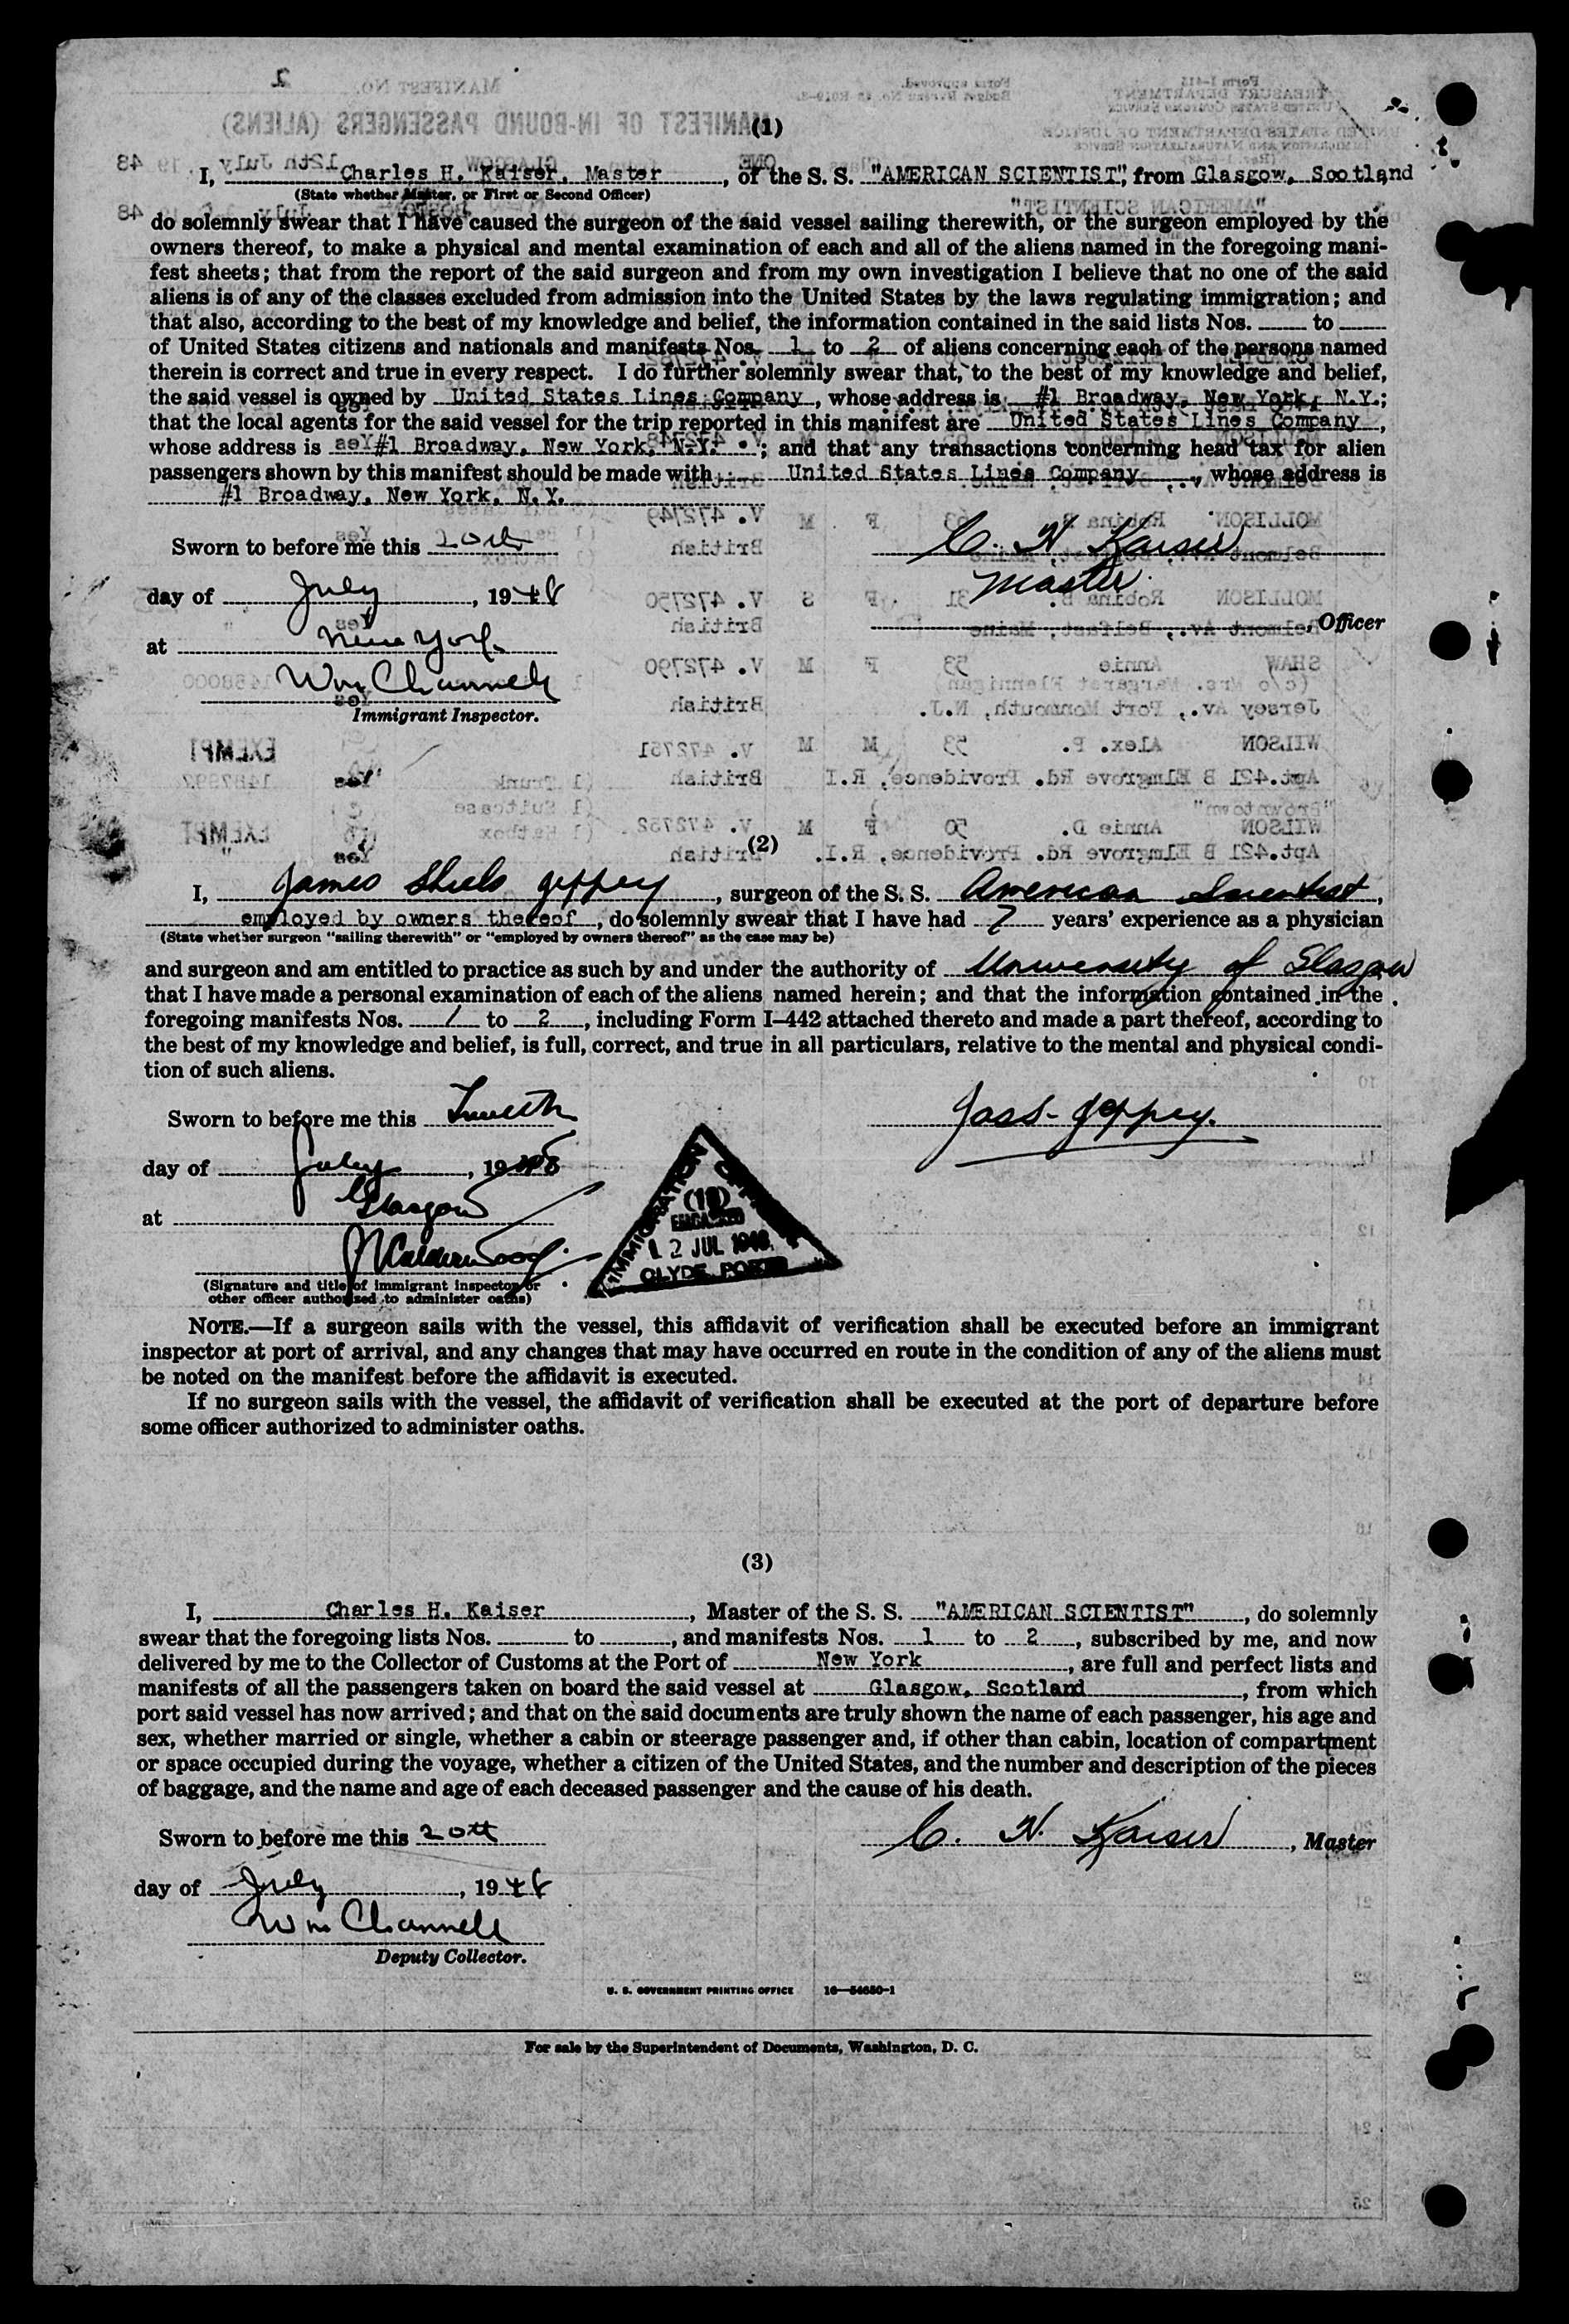 (1)
I, Charles H. Kaiser, Master, of the S. S. "AMERICAN SCIENTIST", from Glasgow, Scotland
(State whether Master, or First or Second Officer)
do solemnly swear that I have caused the surgeon of the said vessel sailing therewith, or the surgeon employed by the
owners thereof, to make a physical and mental examination of each and all of the aliens named in the foregoing mani-
fest sheets; that from the report of the said surgeon and from my own investigation I believe that no one of the said
aliens is of any of the classes excluded from admission into the United States by the laws regulating immigration; and
that also, according to the best of my knowledge and belief, the information contained in the said lists Nos. ____ to ____
of United States citizens and nationals and manifests Nos. 1 to 2 of aliens concerning each of the persons named
therein is correct and true in every respect. I do further solemnly swear that, to the best of my knowledge and belief,
the said vessel is owned by United States Lines Company, whose address is #1 Broadway, New York, N.Y.;
that the local agents for the said vessel for the trip reported in this manifest are United States Lines Company,
whose address is #1 Broadway, New York, N.Y. ; and that any transactions concerning head tax for alien
passengers shown by this manifest should be made with United States Lines Company, whose address is
#1 Broadway, New York, N.Y.
Sworn to before me this 20th
C. H. Kaiser
day of July, 1948
Master
at New York
, Officer
Wm Channell
Immigrant Inspector.
(2)
I, James Shiels Jeffrey, surgeon of the S. S. American Scientist,
employed by owners thereof, do solemnly swear that I have had 7 years' experience as a physician
(State whether surgeon "sailing therewith" or "employed by owners thereof" as the case may be)
and surgeon and am entitled to practice as such by and under the authority of University of Glasgow
that I have made a personal examination of each of the aliens named herein; and that the information contained in the
foregoing manifests Nos. 1 to 2, including Form I-442 attached thereto and made a part thereof, according to
the best of my knowledge and belief, is full, correct, and true in all particulars, relative to the mental and physical condi-
tion of such aliens.
Sworn to before me this Twelfth
Jas S. Jeffrey.
day of July, 1948
at Glasgow
IMMIGRATION OFFICER
(18)
EMBARKED
12 JUL 1948
CLYDE PORTS
(Signature and title of immigrant inspector or
other officer authorized to administer oaths)
NOTE.—If a surgeon sails with the vessel, this affidavit of verification shall be executed before an immigrant
inspector at port of arrival, and any changes that may have occurred en route in the condition of any of the aliens must
be noted on the manifest before the affidavit is executed.
If no surgeon sails with the vessel, the affidavit of verification shall be executed at the port of departure before
some officer authorized to administer oaths.
(3)
I, Charles H. Kaiser, Master of the S. S. "AMERICAN SCIENTIST", do solemnly
swear that the foregoing lists Nos. ____ to ____, and manifests Nos. 1 to 2, subscribed by me, and now
delivered by me to the Collector of Customs at the Port of New York, are full and perfect lists and
manifests of all the passengers taken on board the said vessel at Glasgow, Scotland, from which
port said vessel has now arrived; and that on the said documents are truly shown the name of each passenger, his age and
sex, whether married or single, whether a cabin or steerage passenger and, if other than cabin, location of compartment
or space occupied during the voyage, whether a citizen of the United States, and the number and description of the pieces
of baggage, and the name and age of each deceased passenger and the cause of his death.
Sworn to before me this 20th
C. H. Kaiser, Master
day of July, 1948
Wm Channell
Deputy Collector.
U. S. GOVERNMENT PRINTING OFFICE 16—54650-1
For sale by the Superintendent of Documents, Washington, D. C.